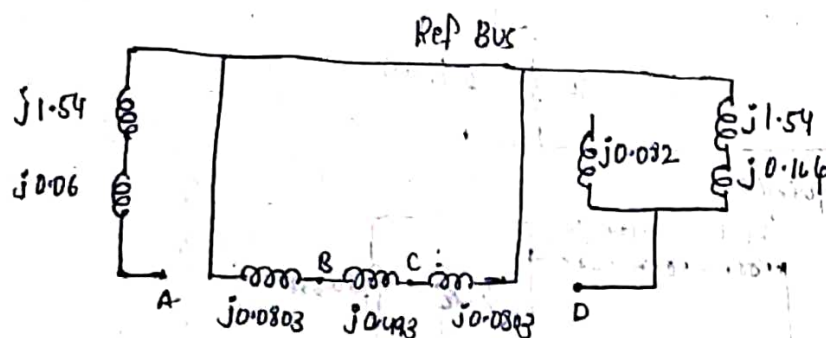 Ref Bus
j1.54
j0.06
j0.082
j1.54
j0.164
A
B
C
D
j0.0803
j0.493
j0.0803